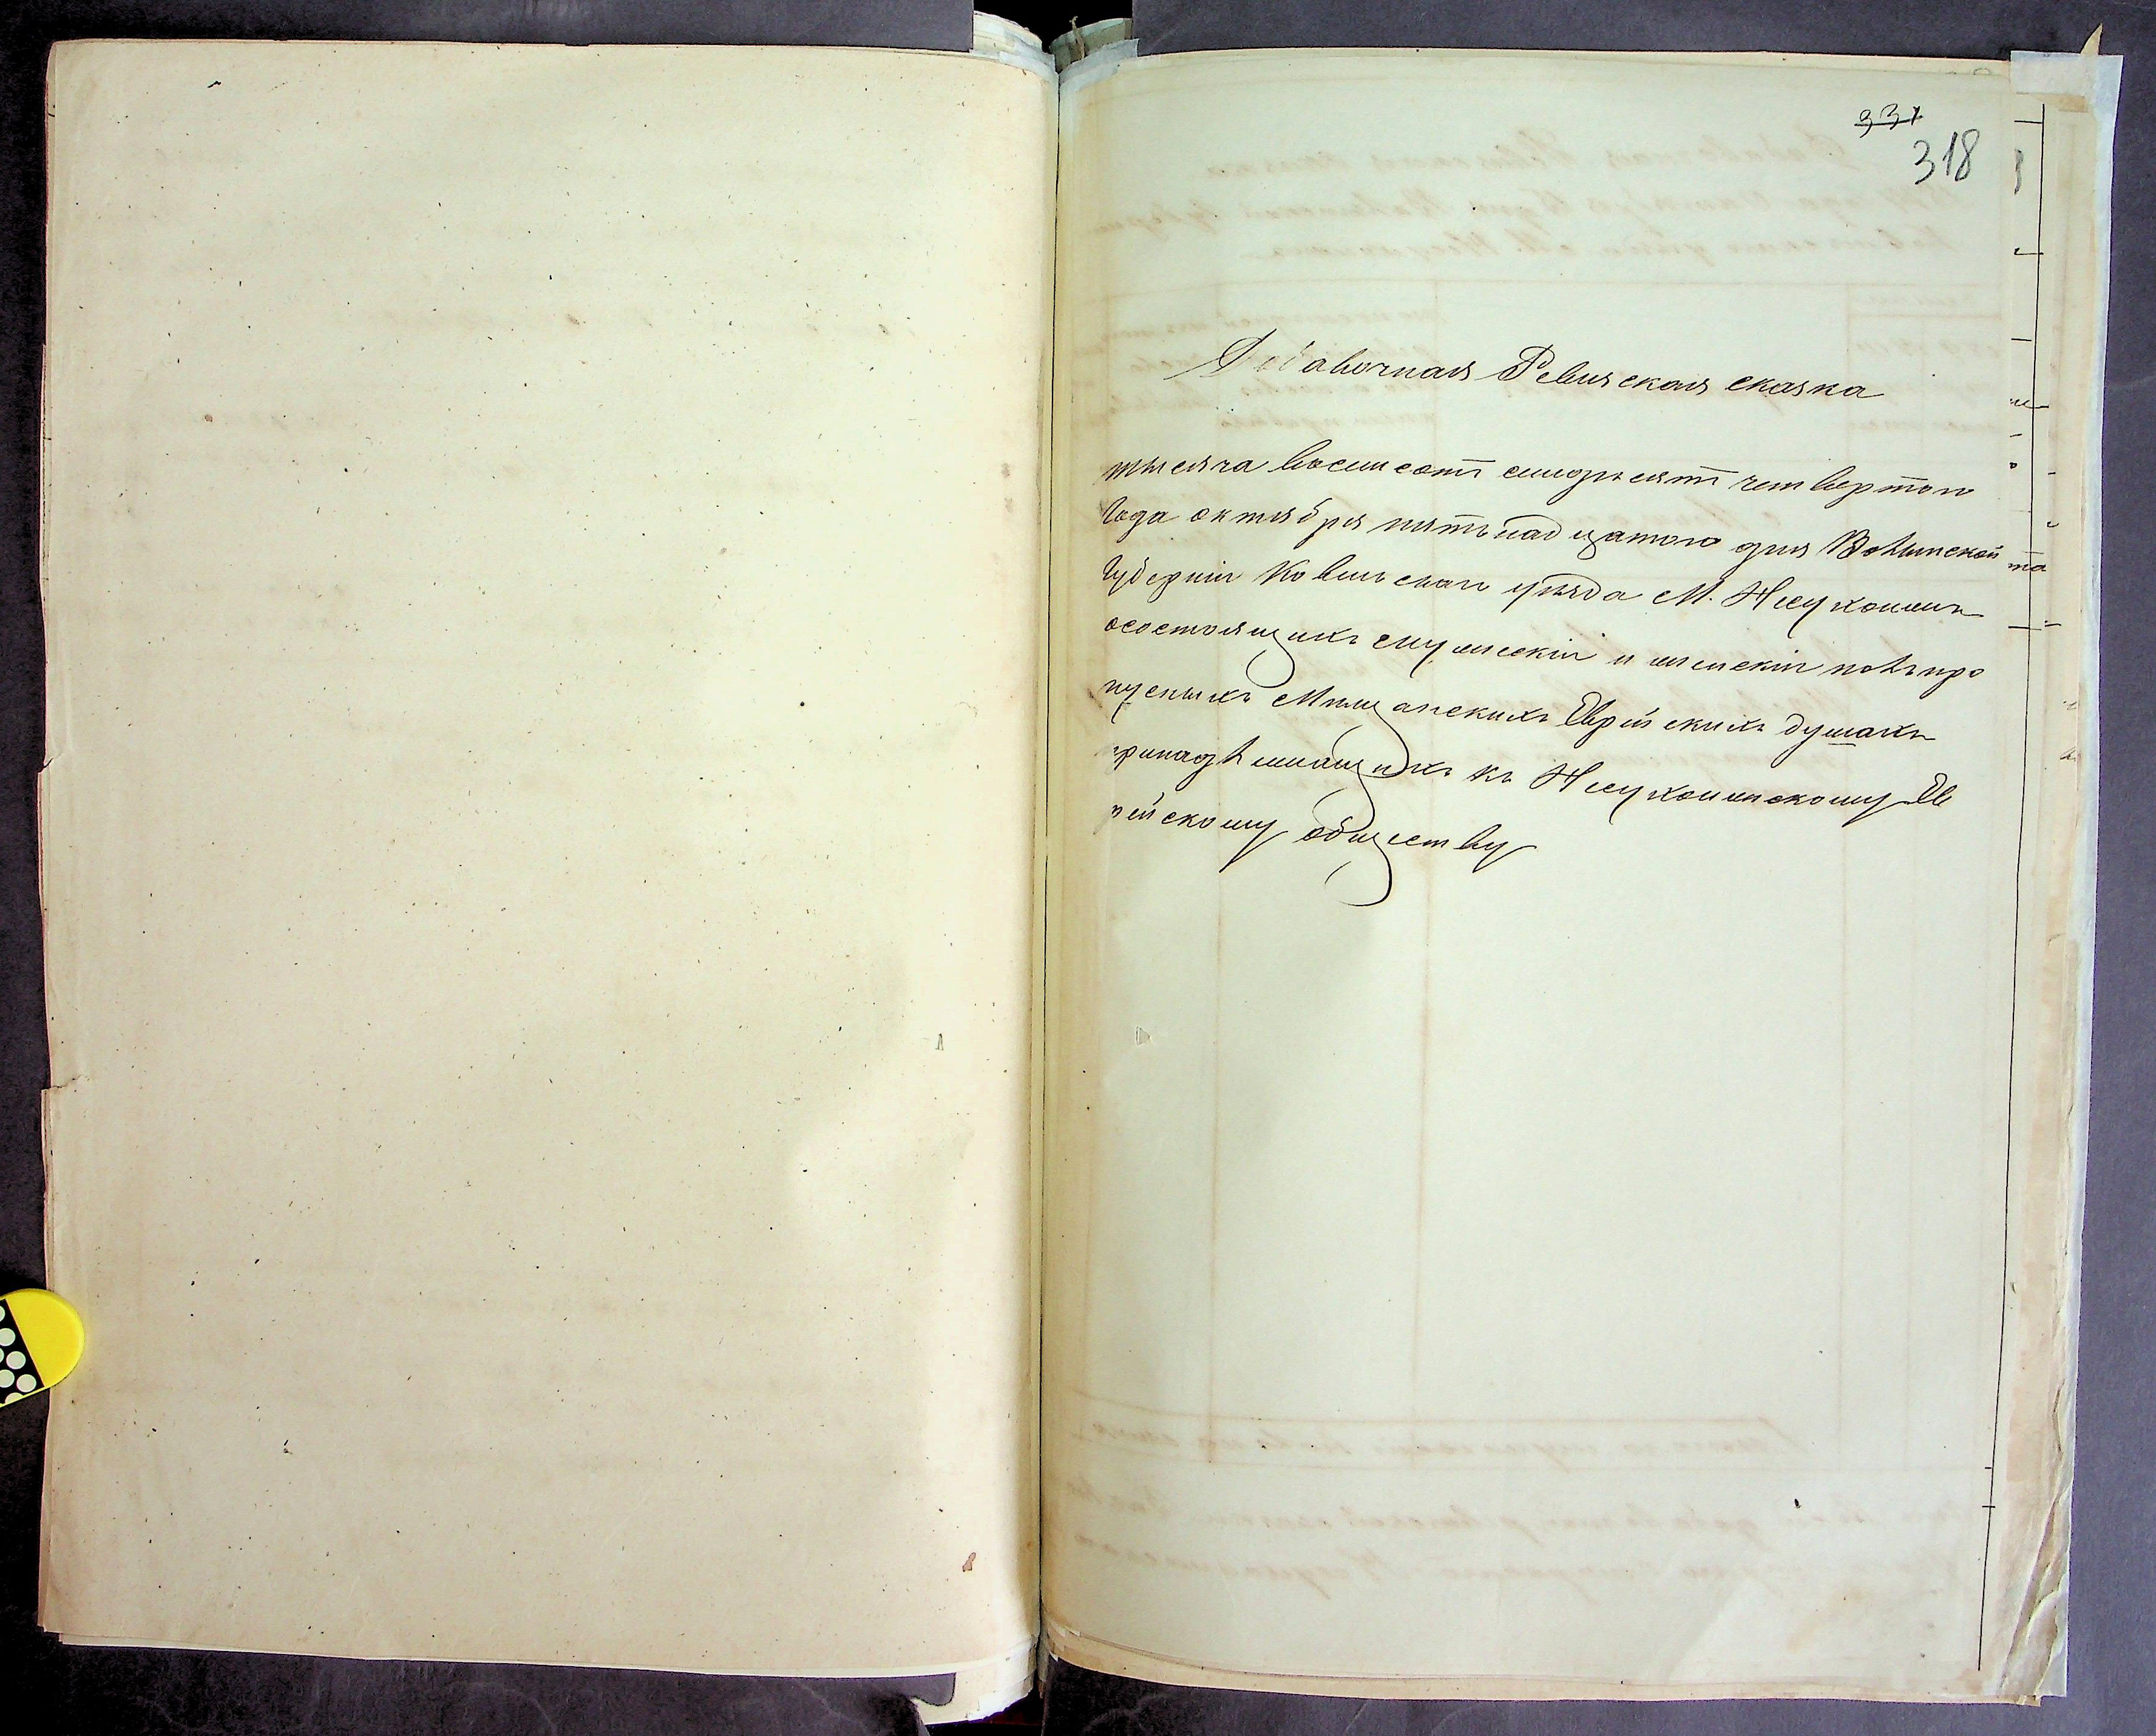 331
318
Добавочная Ревизская сказка
тысяча восемсотъ семдзесятъ четвертого
Года октября пятьнадцатого дня Волынской
Губерніи Ковельскаго уѣзда М. Несухоижъ
осостоящихъ мужескій и женскій полъ про
пусныхъ Мѣщанскихъ Еврейскихъ душахъ
принадлежащихъ къ Несухоижскому Ев
рейскому обществу